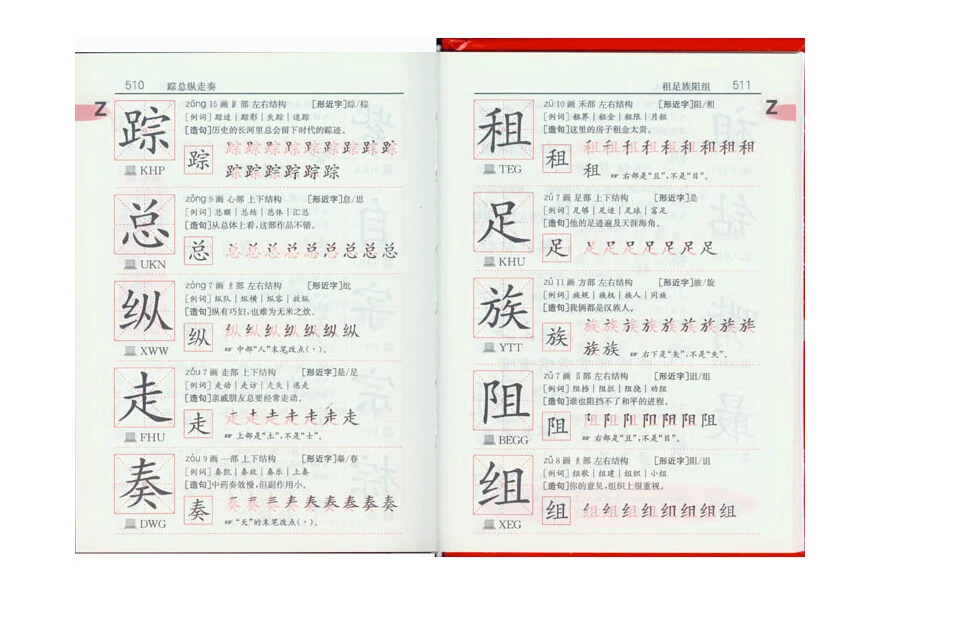 510 踪总纵走奏
Z
踪
KHP
zōng 15画 𧾷部 左右结构 [形近字]综/棕
[例词]踪迹|踪影|失踪|追踪
[造句]历史的长河里总会留下时代的踪迹。
踪
总
UKN
zǒng 9画 心部 上下结构 [形近字]怠/思
[例词]总额|总结|总体|汇总
[造句]从总体上看,这部作品不错。
总
纵
XWW
zòng 7画 纟部 左右结构 [形近字]纰
[例词]纵队|纵横|纵容|放纵
[造句]纵有巧妇,也难为无米之炊。
纵
☞ 中部“人”末笔改点(丶)。
走
FHU
zǒu 7画 走部 上下结构 [形近字]是/足
[例词]走动|走访|走失|逃走
[造句]亲戚朋友总要经常走动。
走
☞ 上部是“土”,不是“士”。
奏
DWG
zòu 9画 一部 上下结构 [形近字]秦/春
[例词]奏凯|奏效|奏乐|上奏
[造句]中药奏效慢,但副作用小。
奏
☞ “天”的末笔改点(丶)。
租足族阻组 511
Z
租
TEG
zū 10画 禾部 左右结构 [形近字]阻/粗
[例词]租界|租金|租限|月租
[造句]这里的房子租金太贵。
租
☞ 右部是“且”,不是“目”。
足
KHU
zú 7画 足部 上下结构 [形近字]是
[例词]足够|足迹|足球|富足
[造句]他的足迹遍及天涯海角。
足
族
YTT
zú 11画 方部 左右结构 [形近字]旅/旋
[例词]族规|族权|族人|同族
[造句]我俩都是汉族人。
族
☞ 右下是“矢”,不是“失”。
阻
BEGG
zǔ 7画 阝部 左右结构 [形近字]诅/组
[例词]阻挡|阻抗|阻挠|劝阻
[造句]谁也阻挡不了和平的进程。
阻
☞ 右部是“且”,不是“目”。
组
XEG
zǔ 8画 纟部 左右结构 [形近字]阻/诅
[例词]组歌|组建|组织|小组
[造句]你的意见,组织上很重视。
组